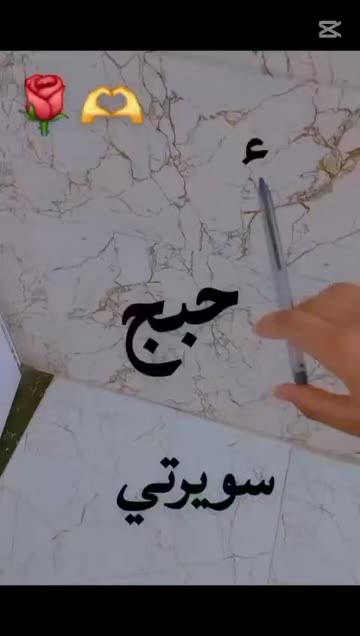 ء
حبج
سويرتي